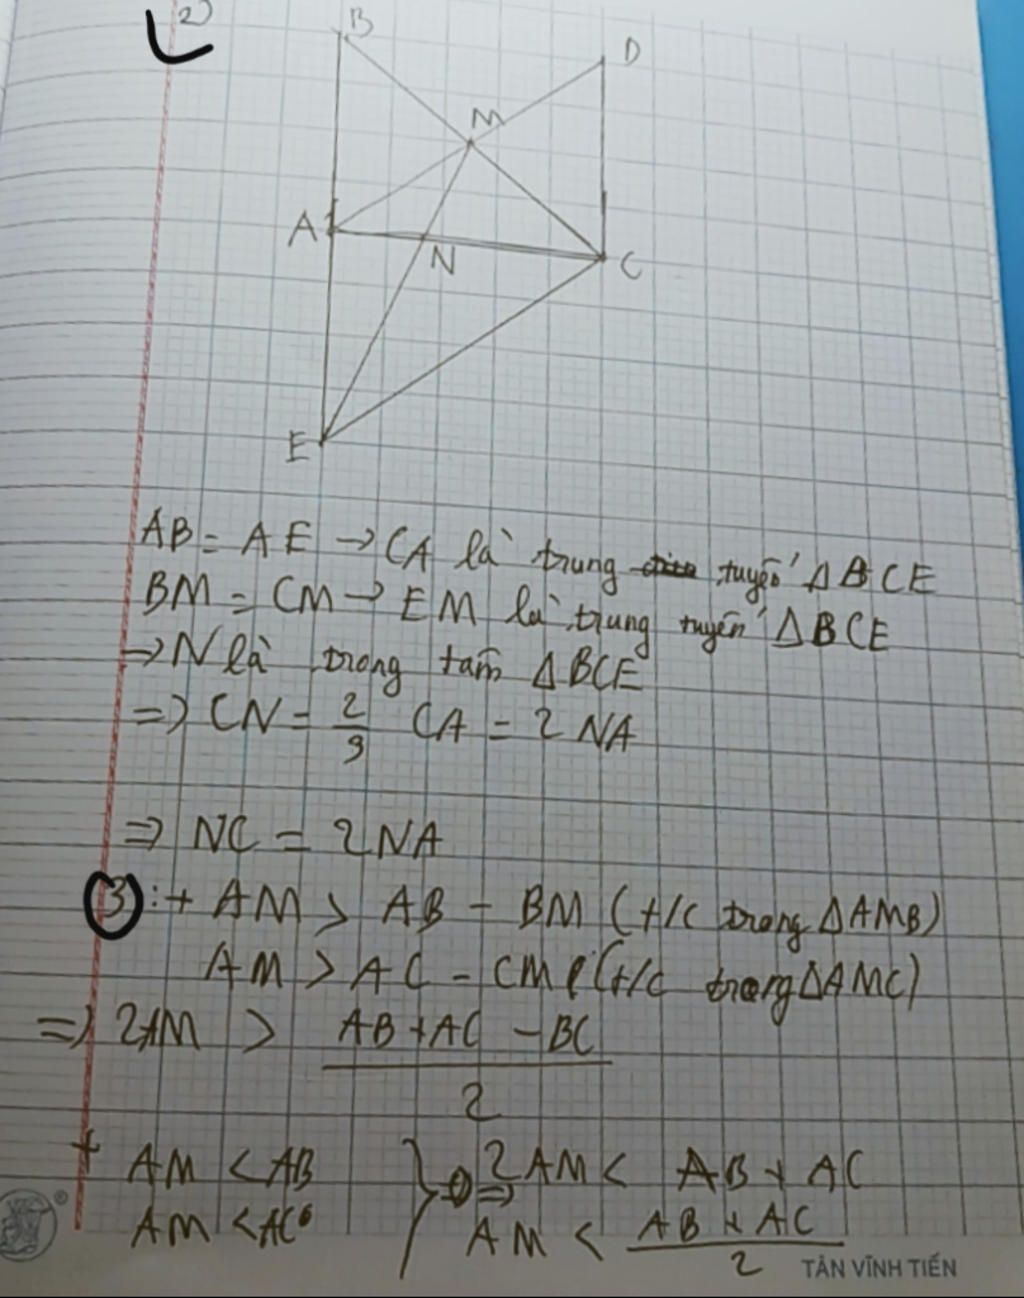 2)
B
D
M
A 1
N
C
E
AB = AE → CA là trung tuyến ΔBCE
BM = CM → EM là trung tuyến ΔBCE
⇒ N là trong tâm ΔBCE
⇒ CN = 2/3 CA = 2 NA
⇒ NC = 2NA
3 : + AM > AB - BM (t/c trong ΔAMB)
AM > AC - CM (t/c trong ΔAMC)
⇒ 2AM > (AB + AC - BC)/2
+ AM < AB } ⇒ 2AM < AB + AC
AM < AC AM < (AB + AC)/2
® TÂN VĨNH TIẾN